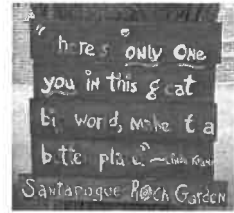 "here's only One
you in this g eat
bi  wor d, make it a
b tte  pla e."
Santapogue Rock Garden